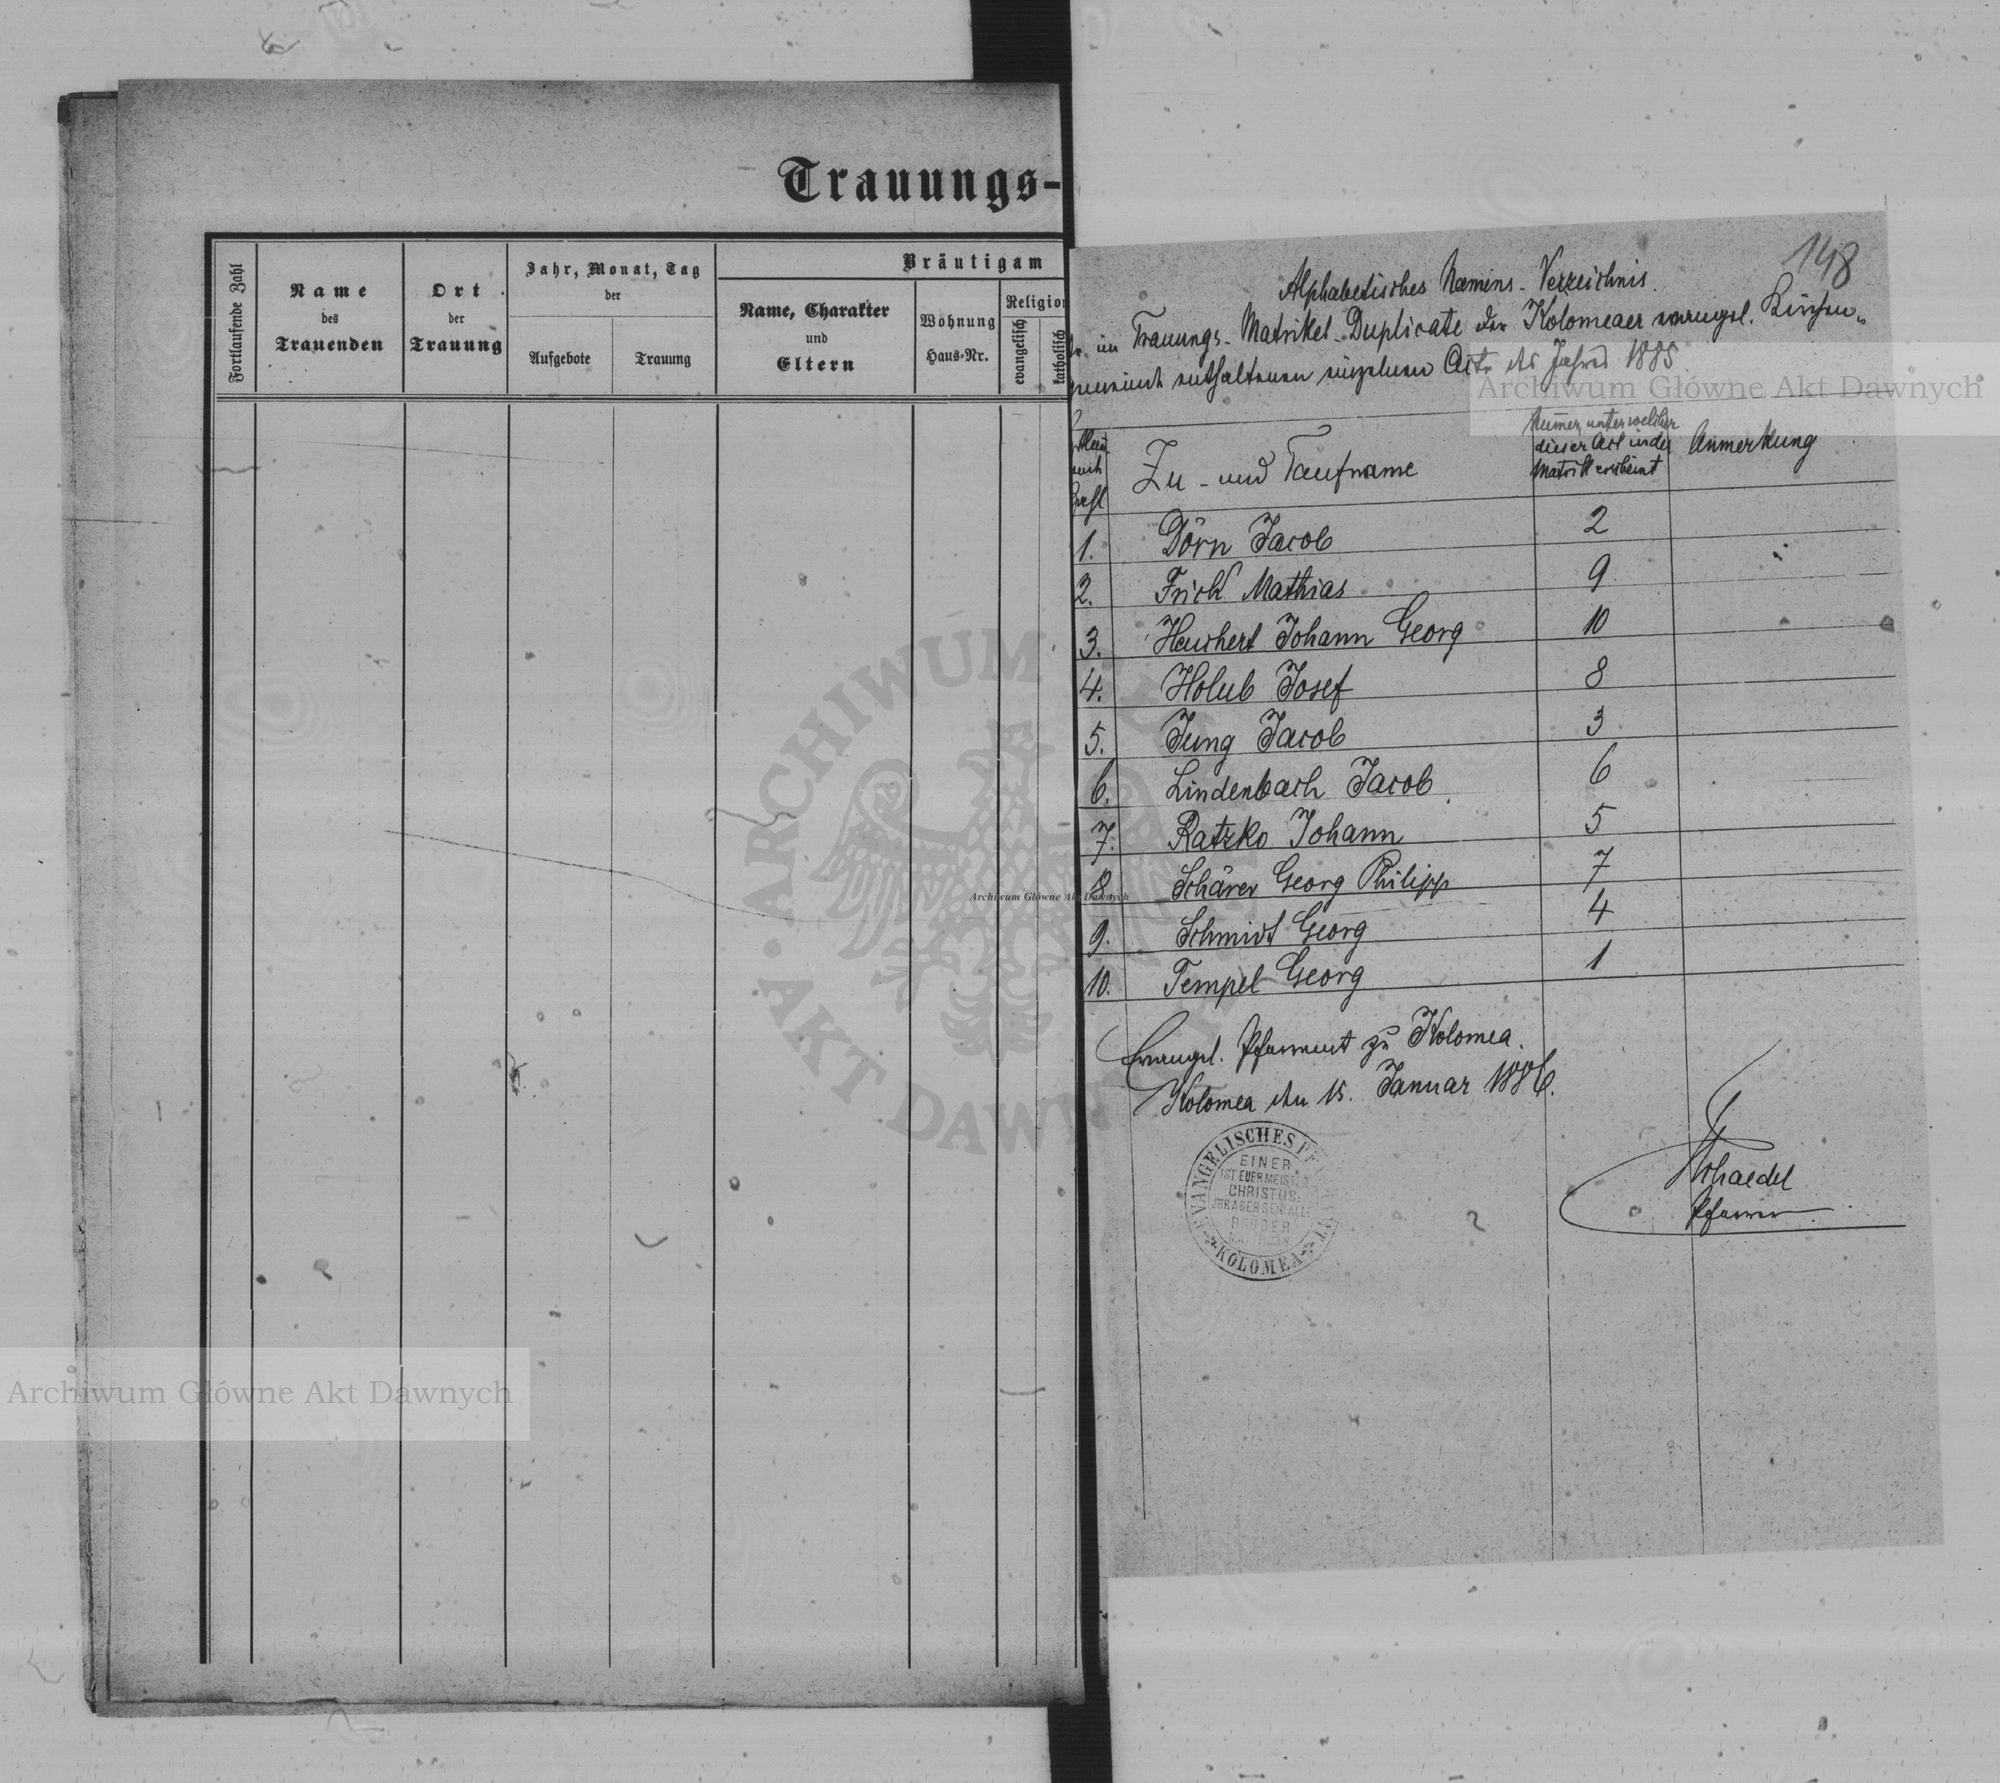 Trauungs-
Fortlaufende Zahl
Name
des
Trauenden
Ort
der
Trauung
Jahr, Monat, Tag
der
Aufgebote
Trauung
Bräutigam
Name, Charakter
und
Eltern
Wohnung
Haus-Nr.
Religion
evangelisch
katholisch
148
Alphabetisches Namens-Verzeichnis.
der im Trauungs-Matrikel-Duplicate der Kolomeaer evangel. Kirchen-
gemeinde enthaltenen einzelnen Acte des Jahres 1885
Zu- und Taufname
Numer, unter welcher
dieser Act in der
Matrik erscheint
Anmerkung
1. Dörn Jacob 2
2. Frick Mathias 9
3. Heuchert Johann Georg 10
4. Holub Josef 8
5. Jung Jacob 3
6. Lindenbach Jacob 6
7. Ratzko Johann 5
8. Schärer Georg Philipp 7
9. Schmidt Georg 4
10. Tempel Georg 1
Evangel. Pfarramt zu Kolomea.
Kolomea den 15. Januar 1886.
EVANGELISCHES
KOLOMEA
EINER
IST EUER MEISTER
CHRISTUS:
IHR ABER SEID ALLE
BRÜDER
Pfarrer
Archiwum Główne Akt Dawnych
Archiwum Główne Akt Dawnych
Archiwum Główne Akt Dawnych
ARCHIWUM
AKT DAWN